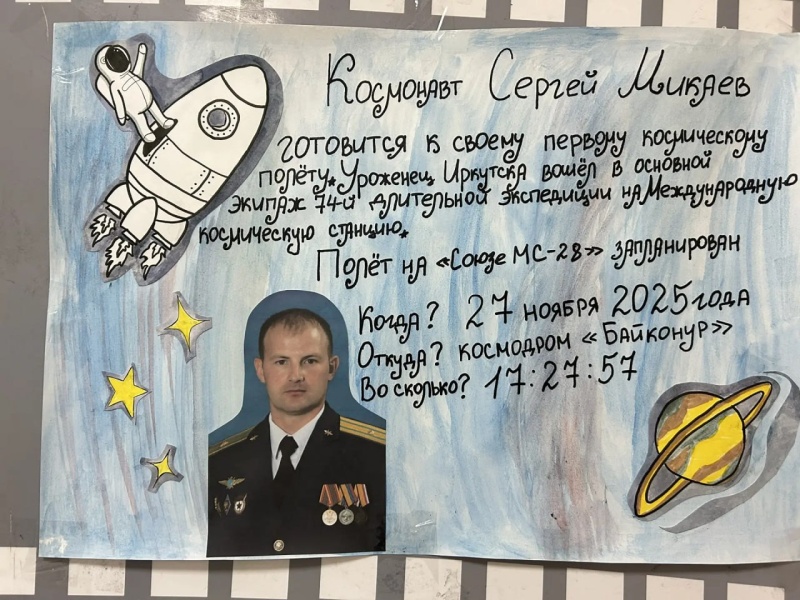 Космонавт Сергей Микаев
готовится к своему первому космическому
полёту. Уроженец Иркутска вошёл в основной
экипаж 74-й длительной экспедиции на Международную
космическую станцию.
Полёт на «Союзе МС-28» запланирован
Когда? 27 ноября 2025 года
Откуда? космодром «Байконур»
Во сколько? 17:27:57